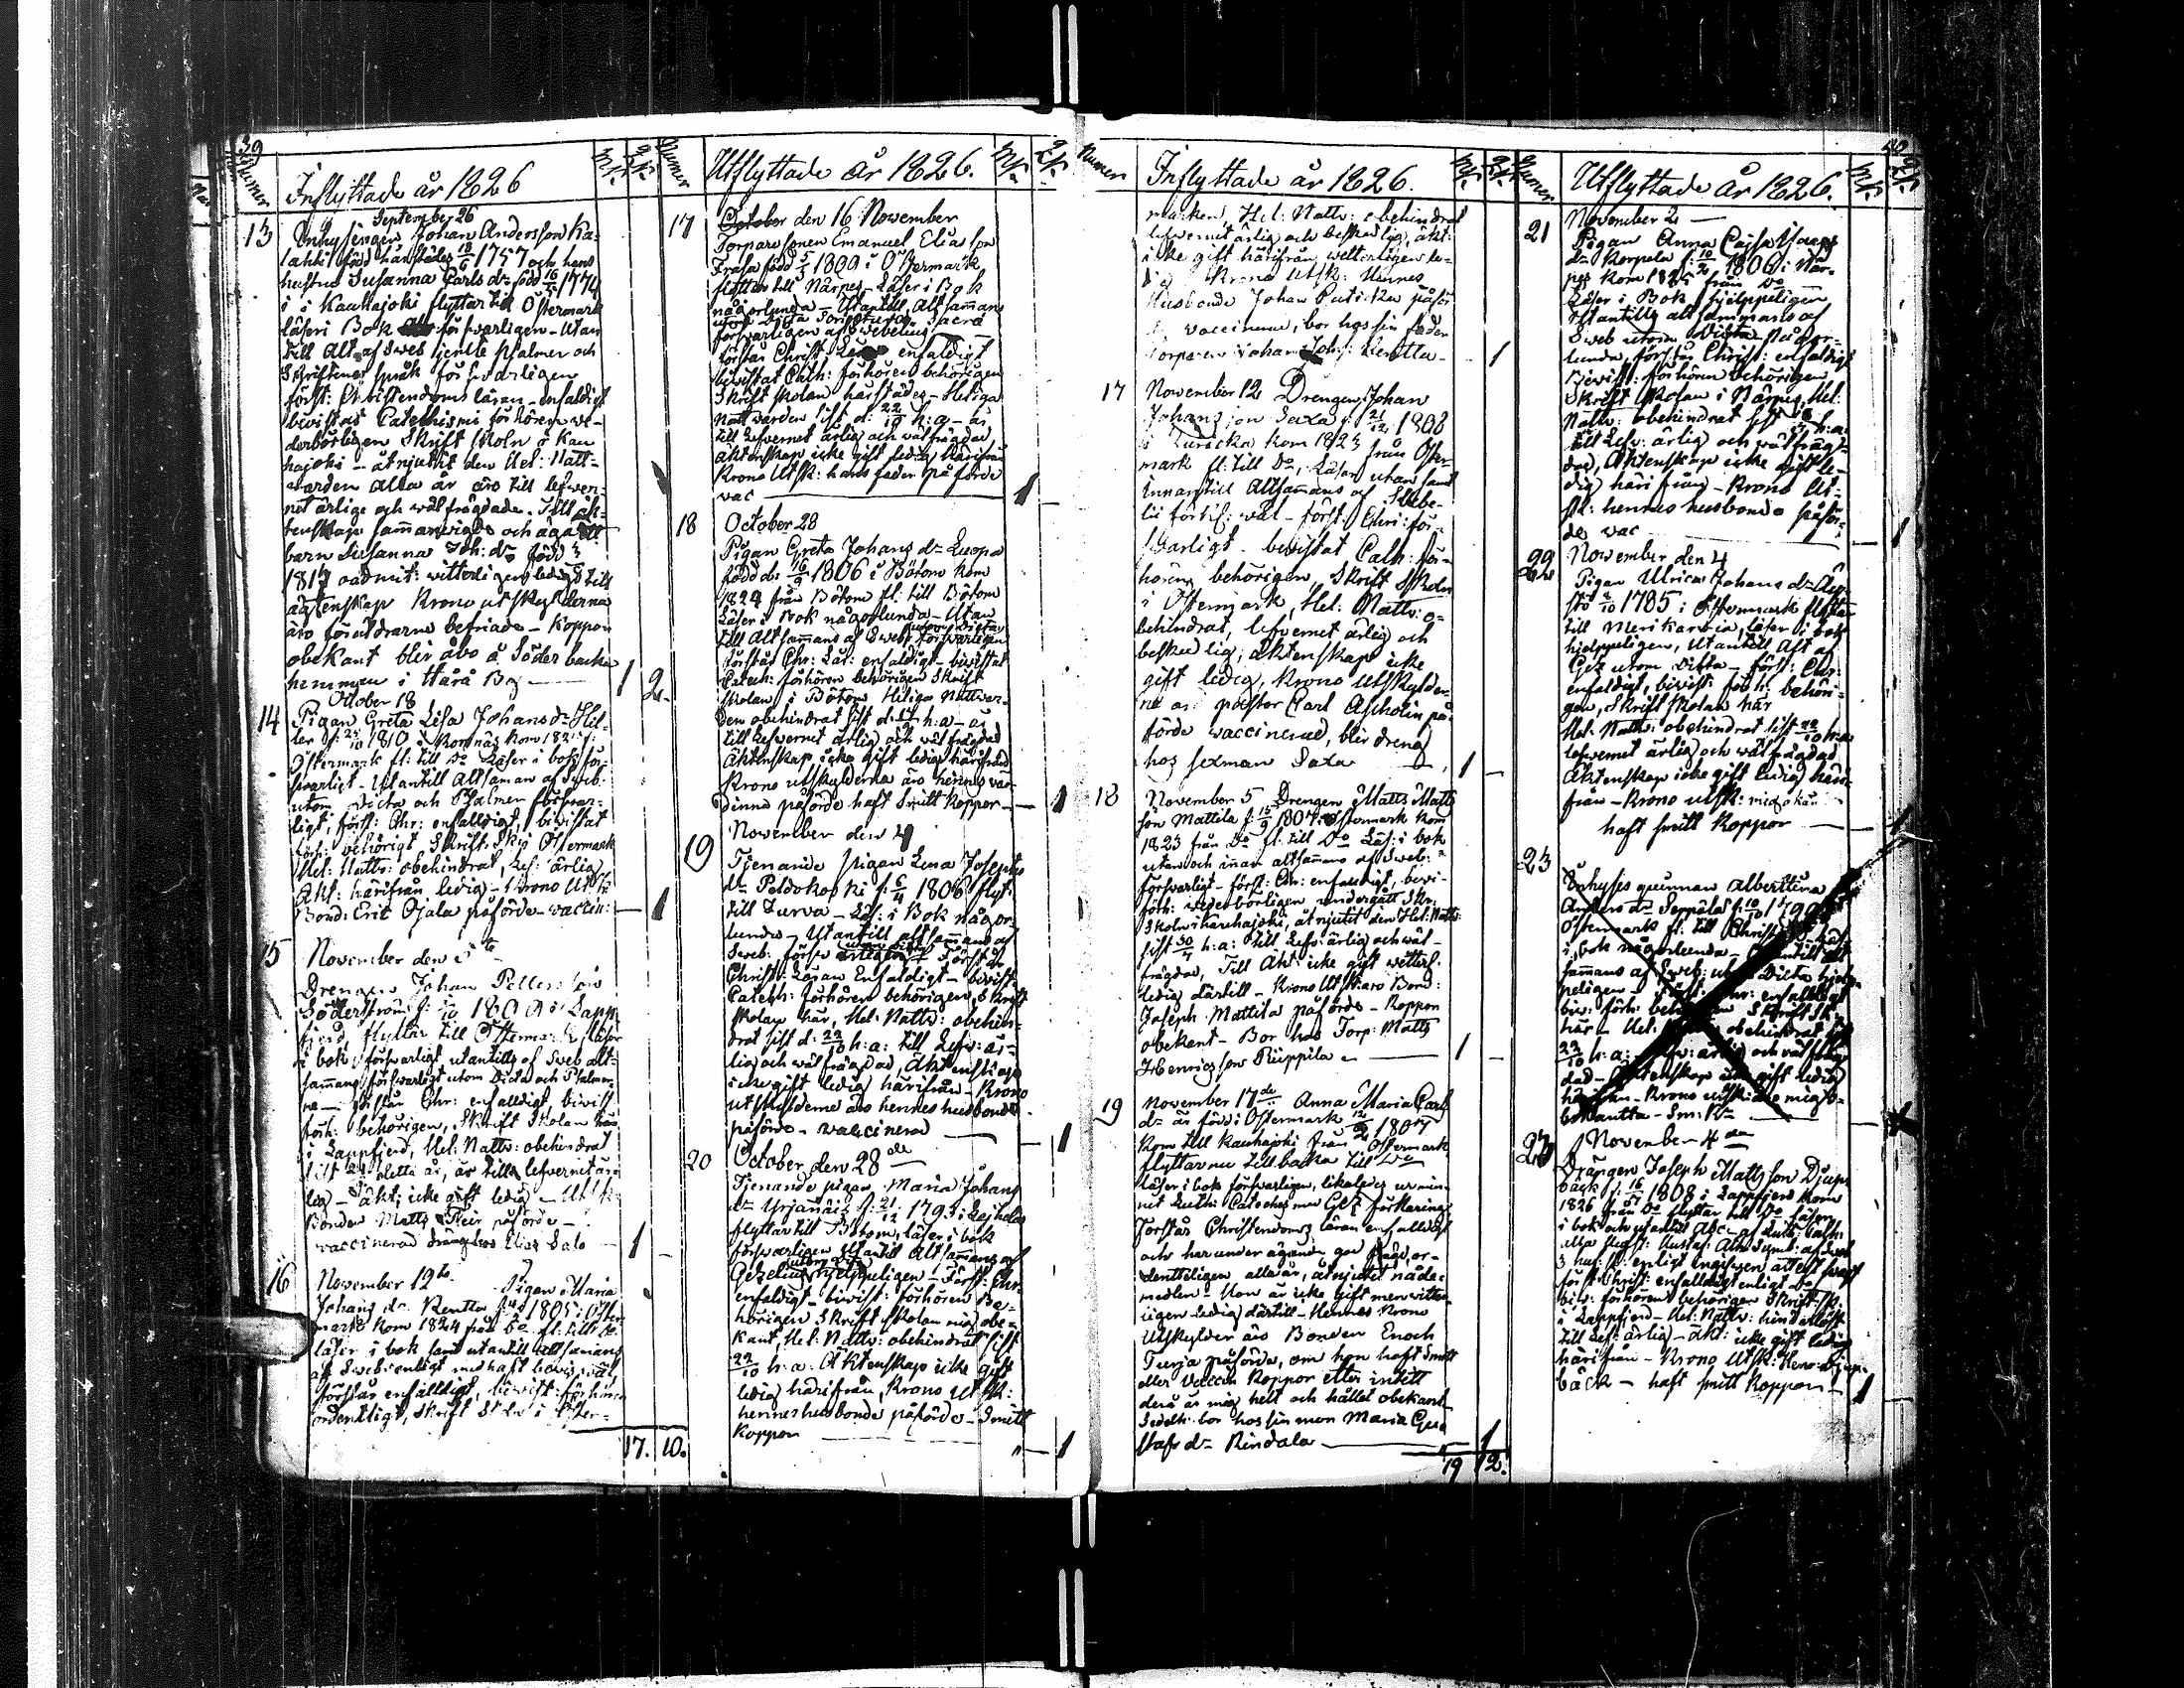 39
Numer
Inflyttade år 1826
M.K.
Q.K.
September 26
13
Inhysingen Johan Andersson Ka-
lahti född härstädes 18/6 1757 och hans
hustru Susanna Carls dr född 16/5 1774
i Kauhajoki flyttar till Östermark
läser i Bok försvarligen - Utan
till Alt af Sweb Psalmer och
Skriftenes språk försvarligen
först: Christendoms läran enfaldigt
bevistat Catechismi förhören we-
derbörligen Skrift Skoln i Kau
hajoki - åtnjutit den Hel: Natt-
warden alla år äro till lefwer-
net ärlige och wälfrägdade. Till äk-
tenskap sammanvigde och äga
barn Susanna Joh: dr född
1817 oadmit: witterligen ledig till
ägtenskap Krono utskylderna
äro föräldrarne befriade - Koppor
obekant blir åbo å Söder backa
hemman i Härä By
1 2
October 18
14
Pigan Greta Lisa Johans dr Hel-
ler f: 25/10 1810 i Korsnäs kom 182
Östermark fl: till Do Läser i bok för-
svarligt - Utantill Altsaman af Sweb:
utom Dicta och Psalmer försvar-
ligt, först: Chr: enfalldigt, bivistat
förh: behörigt Skrift: Sk: i Östermark
Hel: Nattv: obehindrat, Lef: ärlig
Äkt: härifrån ledig - Krono Utsk:
Bond: Erik Ojala påförde - vaccin:
1
15
November den 5te
Drengen Johan Petters son
Söderström f: 1/10 1800 i Lapp
fjerd flyttar till Östermark, läser
i bok försvarligt utantill af Sweb alt-
sammans försvarligt utom Dicta och Psalmer
na - förstår Chr: enfalldigt bivist
förh: behörigen, Skrift Skolan
i Lappfjerd, Hel: Nattv: obehindrat
sist detta år, är till lefvernet är-
lig - äkt: icke gift ledig - Utsk:
Bonden Matts påförde -
vaccinerad drängen hos Elias Salo
1
16
November 12te
Pigan Maria
Johans dr Rentta f: 1805 i Öster
mark kom 1824 från Do fl: till Do
läser i bok samt utantill altsammans
af Sweb: enligt medhaft bevis väl,
förstår enfälldigt, bivist: förhören
ordentligt, Skrift Skoln i Öster-
17. 10.
Numer
Utflyttade år 1826.
M.K.
Q.K.
17
October den 16 November
Torpare sonen Emanuel Elia son
Frasa född 5/5 1800 i Östermark
flyttar till Närpes - Läser i Bok
någorlunda - Utantill Altsammans
utom Dicta Scripturæ Sacræ
försvarligen af Swebelius
förstår Christ: Läran enfaldigt
bivistat Cath: förhören behörigen
Skrift skolan härstädes - Heliga
Nattwarden sist d: 22/10 h: a - är
till Lefvernet ärlig och wälfrägdad
Äktenskap icke gift ledig härifrån
Krono Utsk: hans fader påförde
vac
1
18
October 28
Pigan Greta Johans dr Luopa
född d: 16/9 1806 i Bötom kom
1824 från Bötom fl: till Bötom
Läser i Bok någorlunda - Utan
till Altsammans af Sweb: utom Dicta försvarligen
förstår Chr: Lär: enfaldigt - bivistat
Catech: förhören behörigen Skrift
skolan i Bötom Heliga Nattwar-
den obehindrat sist d: h: a - är
till Lefvernet ärlig och wälfrägdad
Äktenskap icke gift ledig härifrån
Krono utskylderna äro hennes vär-
dinna påförde haft Smitt koppor -
1
19
November den 4
Tjenande pigan Lena Josephs
dr Peldokoski f: 6/4 1806 flyt:
till Jurva - Läs: i Bok någor
lunda - Utantill altsammans af
Sweb: utom Dicta försvarligen Förstår
Christ: Läran Enfaldigt - bivist:
Catech: förhören behörigen, Skrift
skolan här, Hel: Nattv: obehin-
drat sist d: 22/10 h: a: till Lefw: är-
lig och wälfrägdad, Äktenskap
icke gift ledig härifrån - Krono
utskylderne äro hennes husbonde
påförde - vaccinerad
1
20
October den 28de
Tjenande pigan Maria Johans
dr Yrjänäis f: 21/12 1793 i Laihela
flyttar till Bötom, läser i bok
försvarligen utantill Altsammans af
Gezelius utom Dicta hjelppeligen - Först: Chr:
enfaldigt - bivist: förhören Be-
hörigen Skrift Skolan mig obe-
kant, Hel: Nattv: obehindrat sist
22/10 h: a: Äktenskap icke gift
ledig härifrån, Krono Utsk:
hennes husbonde påförde - Smitt
koppor
1
Numer
Inflyttade år 1826.
M.K.
Q.K.
marken, Hel: Nattv: obehindrat
lefvernet ärlig och beskedlig, äkt:
icke gift härifrån, witterligen le-
dig Krono Utsk: Hennes
Husbonde Johan påför
de vaccinerad, bor hos sin fader
Torparen Johan Joh: Rentta -
1
17
November 12 Drengen Johan
Johans son Saxa f: 21/12 1808
i kom 1823 från Öster
mark fl: till Do, Läser utan samt
innantill Altsammans af Swebe-
lii förkl: wäl - först: Chri: för-
svarligt - bevistat Cath: för-
hören behörigen, Skrift Skolan
i Östermark, Hel: Nattv: o-
behindrat, lefvernet ärlig och
beskedlig, äktenskap icke
gift ledig, Krono Utskylder-
na är pastor Carl Ascholin på-
förde vaccinerad, blir dreng
hos sexman Saxa
1
18
November 5 Drengen Matts Matts
son Mattila f: 15/9 1807 i Östermark kom
1823 från Do fl: till Do Läs: i bok
utan och innan altsammans af Sweb:
försvarligt - först: Chr: enfaldigt, bevi-
förh: wederbörligen, undergått Skr:
Skoln i Kauhajoki, åtnjutit den Hel: Nattv:
sist 30/4 h: a: Till Lefv: ärlig och wäl-
frägdad, Till Äkt: icke gift wetterl:
ledig därtill - Krono Utsk: äro Bond:
Joseph Mattila påförde - Koppor
obekant - Bor hos Torp: Matts
Henrics son Rüppilä
1
19
November 17de Anna Maria Carls
dr är född i Östermark 12/2 1807
Kom till Kauhajoki från Östermark
flyttar nu tillbaka till Do
läser i bok försvarligen, likaledes
Luth: Cateches med Gez: förklaring
Förstår Christendoms läran enfalldigt
och har under ägande god fräjd, or-
dentteligen alla år, åtnjutit nåde-
medlen - Hon är icke gift men witter-
ligen ledig därtill - Hennes Krono
Utskylder äro Bonden Enoch
Turja påförde, om hon haft Smitt
eller Vaccin koppor eller intett
dera är mig helt och hållet obekant
Sedeln bor hos sin mor Maria Gus
stafs dr Rindala
1
19 12.
40
Numer
Utflyttade år 1826.
M.K.
Q.K.
21
November 2
Pigan Anna Cajsa Isaacs
dr Korpela f: 10/2 1806 i När-
pes kom 1825 från Do
Läser i Bok hjelppeligen
Utantill altsammans af
Sweb utom Dicta någor-
lunda, förstår Christ: enfaldigt
bevist: förhören behörigen
Skrift Skolan i Närpes, Hel:
Nattv: obehindrat sist h: a:
till Lefv: ärlig och wälfrägd-
dad, Äktenskap icke gift le-
dig härifrån - Krono Ut-
sk: hennes husbonde påför-
de vac
1
22
November den 4
Pigan Ulrica Johans dr
1785 i Östermark flyttar
till Merikarvia, läser i bok
hjelppeligen, Utantill Alt af
Gez utom Dicta - först: Chr:
enfaldigt, bivist: förh: behöri-
gen, Skrift Skolan här
Hel: Nattv: obehindrat sist 22/10 h: a
lefwernet ärlig och wälfrägdad
Äktenskap icke gift ledig häri-
från - Krono utsk: mig okän
haft smitt koppor
1
23
Inhyses quinnan Albertina
Anders dr Seppälä f: 10/10
Östermark fl: till Christ: Läs:
i bok någorlunda - Utantill alt
sammans af Sweb: utom Dicta hjelp-
peligen - först: Chr: enfalldigt
biv: förh: behörigen Skrift Sk:
här - Hel: Nattv: obehindrat sist
22/10 h: a: Lefw: ärlig och wälfräg
dad - Äktenskap icke gift ledig
härifrån - Krono Utsk: äro mig o-
bekantta - Sm: K:
23
November 4de
Drängen Joseph Mattsson Djup
bäck f: 16/ 1808 i Lappfjerd kom
1826 från Do flyttar till Do Läser
i bok och utantill Abc - af Luth: Cath:
alla Hust: Taf: Ath: Symb: af Sweb
3 huf: st: enligt ingifven attest svagt
först: Christ: enfalldigt enligt Do
biv: förhören behörigen Skrift: Sk:
i Lappfjerd - Hel: Nattv: hinderlöst
till Lef: ärlig - äkt: icke gift ledig
härifrån - Krono Utsk: Henr: Djup-
bäck - haft smitt koppor -
1